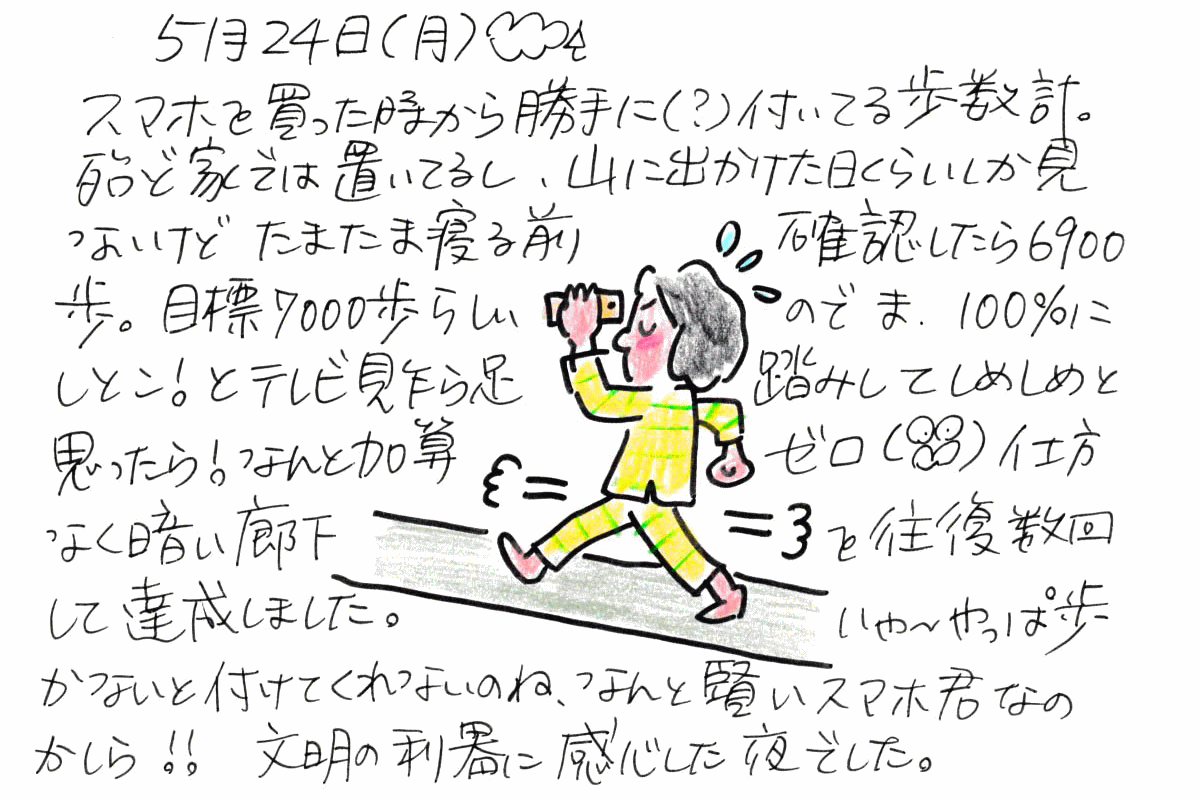 5月24日(月)
スマホを買った時から勝手に(?)付いてる歩数計。
殆ど家では置いてるし、山に出かけた日くらいしか見
ないけど たまたま寝る前 確認したら6900
歩。目標7000歩らしい のでま、100%に
しとこ!とテレビ見乍ら足 踏みしてしめしめと
思ったら!なんと加算 ゼロ( )仕方
なく暗い廊下 を往復数回
して達成しました。 いや〜やっぱ歩
かないと付けてくれないのね、なんと賢いスマホ君なの
かしら!! 文明の利器に感心した夜でした。